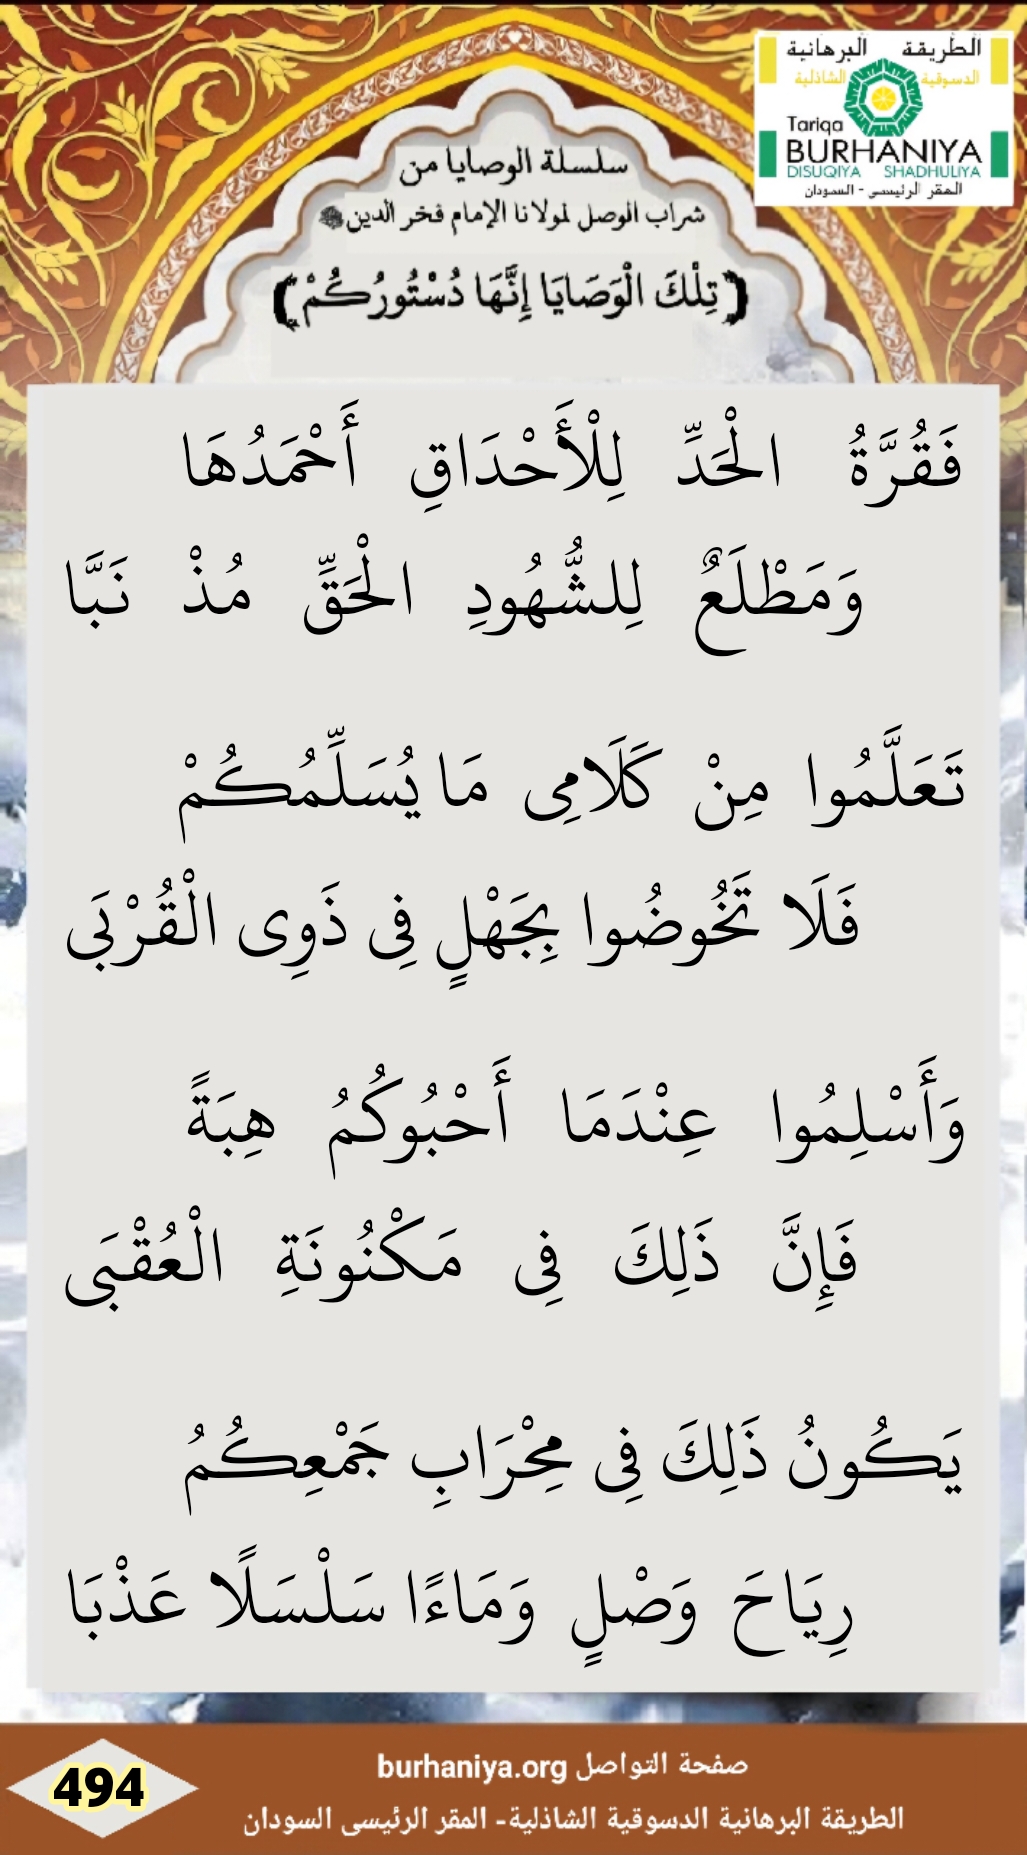 الطريقة البرهانية
الدسوقية الشاذلية
Tariqa
BURHANIYA
DISUQIYA SHADHULIYA
المقر الرئيسى - السودان
سلسلة الوصايا من
شراب الوصل لمولانا الإمام فخر الدين ﷺ
﴿تِلْكَ الْوَصَايَا إِنَّهَا دُسْتُورُكُمْ﴾
فَقُرَّةُ الْحَدِّ لِلْأَحْدَاقِ أَحْمَدُهَا
وَمَطْلَعٌ لِلشُّهُودِ الْحَقِّ مُذْ نَبَّا
تَعَلَّمُوا مِنْ كَلَامِى مَا يُسَلِّمُكُمْ
فَلَا تَخُوضُوا بِجَهْلٍ فِى ذَوِى الْقُرْبَى
وَأَسْلِمُوا عِنْدَمَا أَحْبُوكُمُ هِبَةً
فَإِنَّ ذَلِكَ فِى مَكْنُونَةِ الْعُقْبَى
يَكُونُ ذَلِكَ فِى مِحْرَابِ جَمْعِكُمُ
رِيَاحَ وَصْلٍ وَمَاءًا سَلْسَلًا عَذْبَا
صفحة التواصل burhaniya.org
الطريقة البرهانية الدسوقية الشاذلية- المقر الرئيسى السودان
494